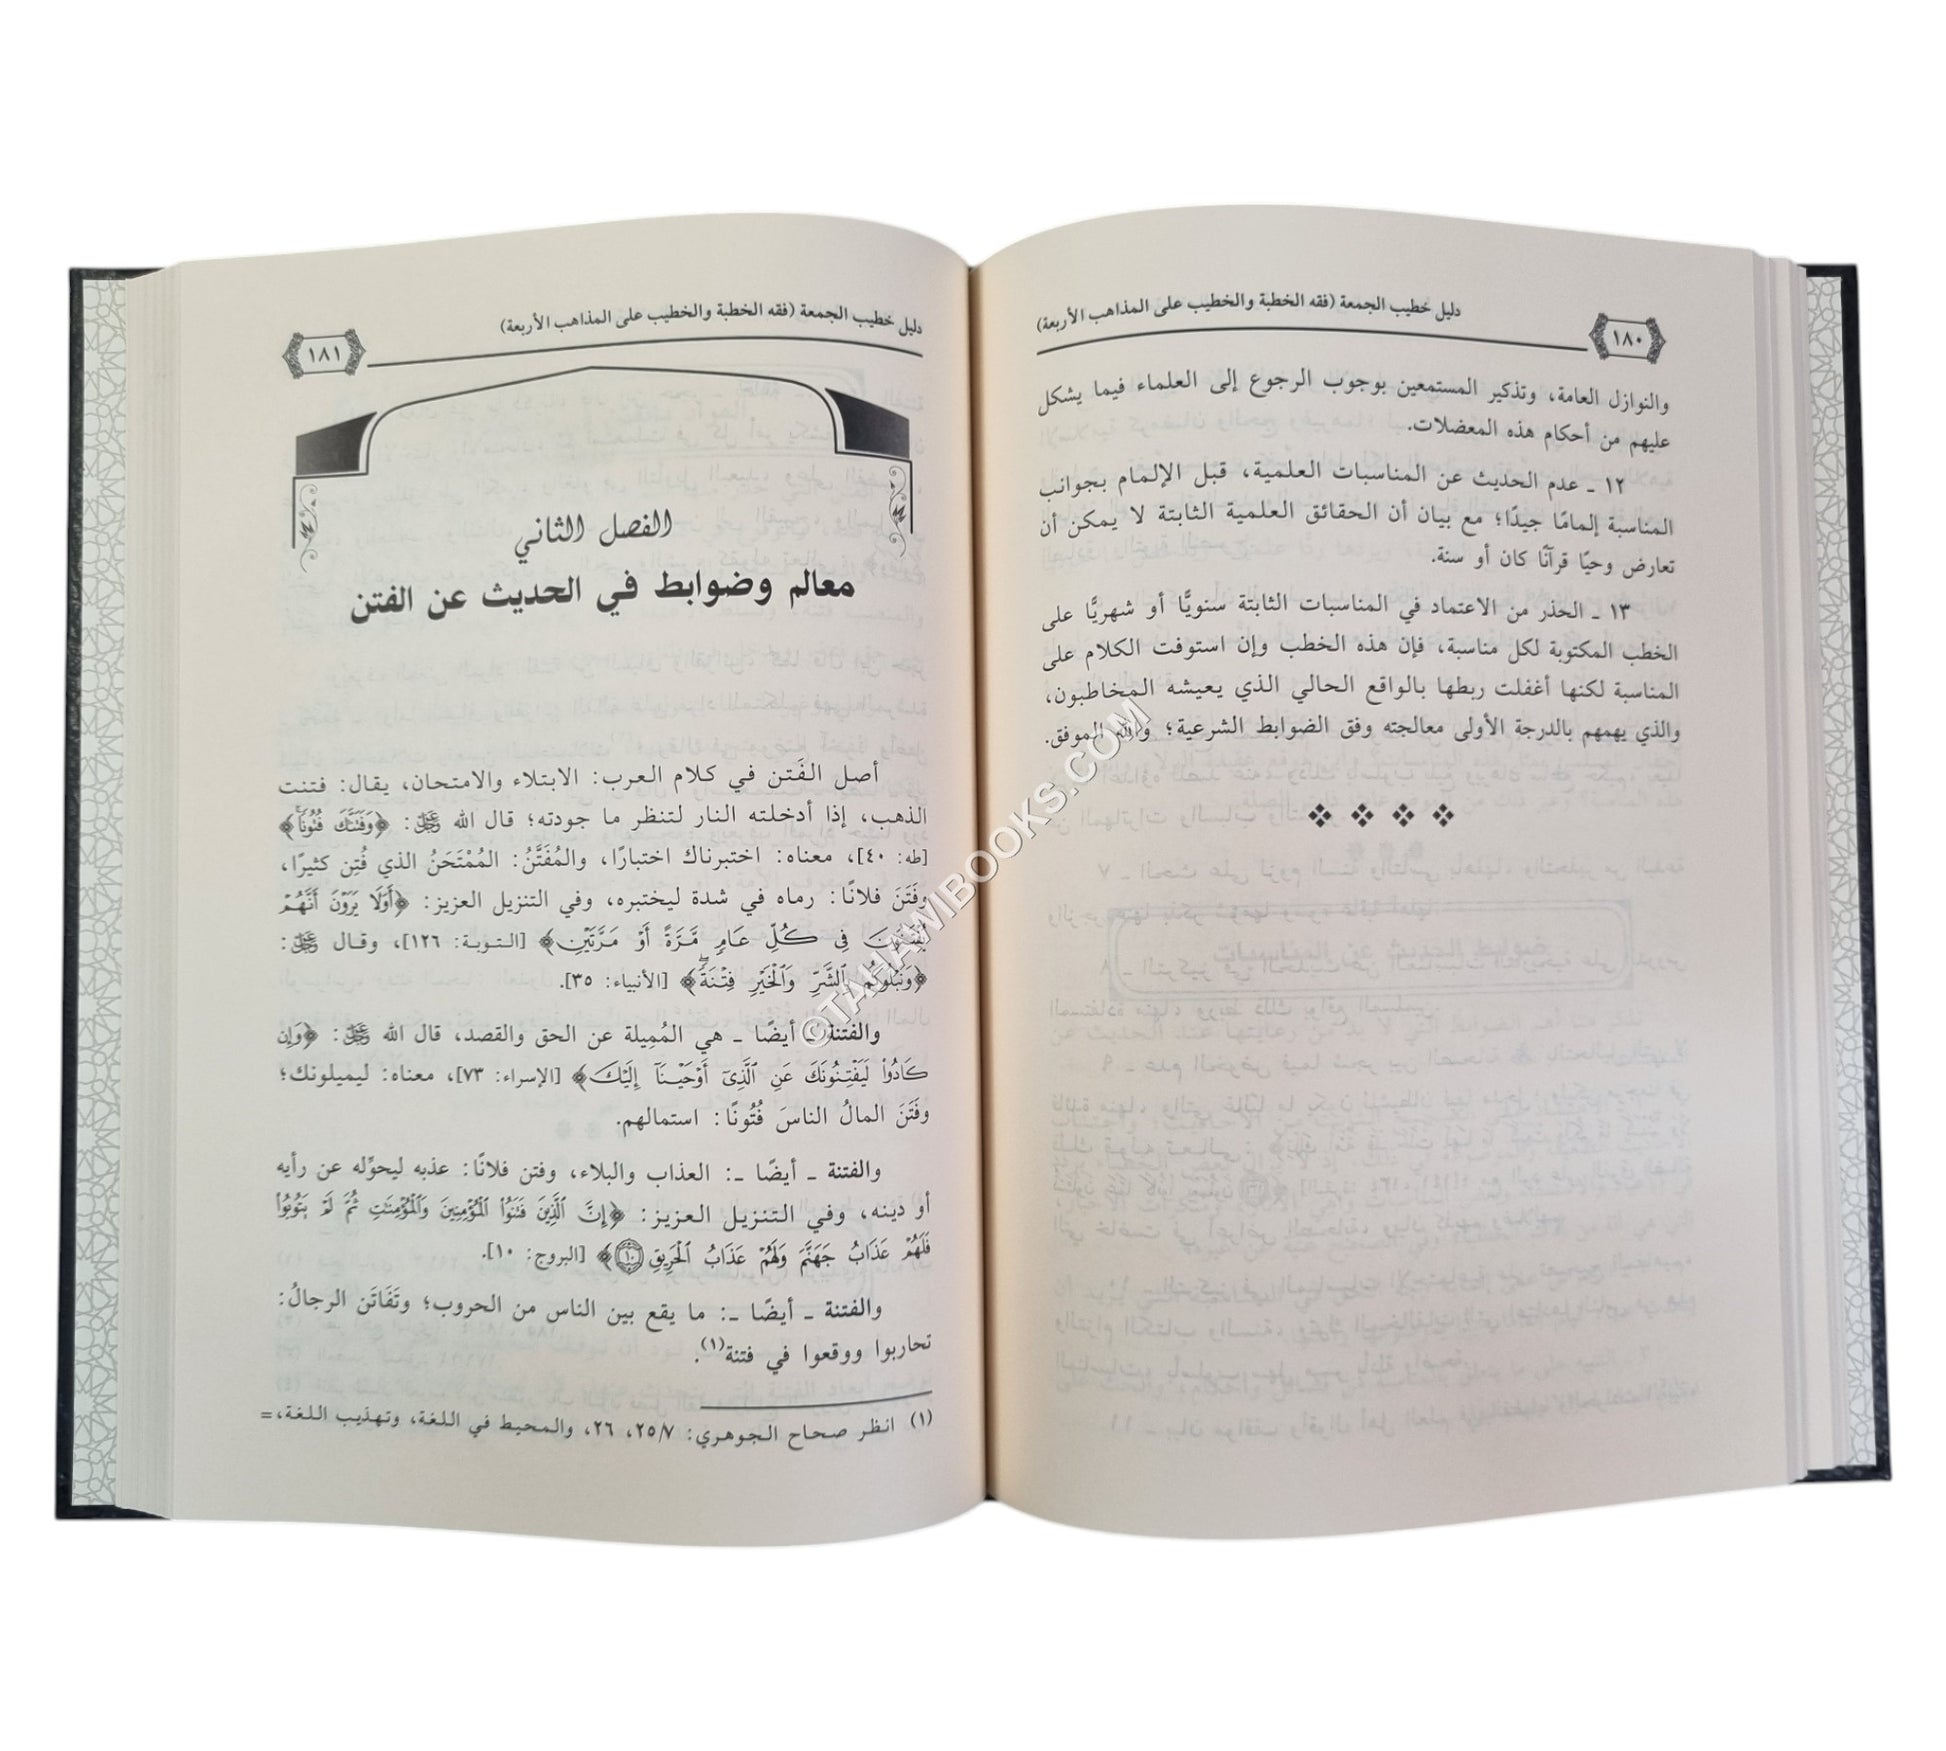 دليل خطيب الجمعة (فقه الخطبة والخطيب على المذاهب الأربعة)
١٨٠
والنوازل العامة، وتذكير المستمعين بوجوب الرجوع إلى العلماء فيما يشكل
عليهم من أحكام هذه المعضلات.
١٢ ـ عدم الحديث عن المناسبات العلمية، قبل الإلمام بجوانب
المناسبة إلمامًا جيدًا؛ مع بيان أن الحقائق العلمية الثابتة لا يمكن أن
تعارض وحيًا قرآنًا كان أو سنة.
١٣ ـ الحذر من الاعتماد في المناسبات الثابتة سنويًّا أو شهريًّا على
الخطب المكتوبة لكل مناسبة، فإن هذه الخطب وإن استوفت الكلام على
المناسبة لكنها أغفلت ربطها بالواقع الحالي الذي يعيشه المخاطبون،
والذي يهمهم بالدرجة الأولى معالجته وفق الضوابط الشرعية؛ والله الموفق.
دليل خطيب الجمعة (فقه الخطبة والخطيب على المذاهب الأربعة)
١٨١
الفصل الثاني
معالم وضوابط في الحديث عن الفتن
أصل الفَتن في كلام العرب: الابتلاء والامتحان، يقال: فتنت
الذهب، إذا أدخلته النار لتنظر ما جودته؛ قال الله ﷿: ﴿وَفَتَنَّٰكَ فُتُونٗاۚ﴾
[طه: ٤٠]، معناه: اختبرناك اختبارًا، والمُفَتَّنُ: المُمْتَحَنُ الذي فُتِن كثيرًا،
وفَتَنَ فلانًا: رماه في شدة ليختبره، وفي التنزيل العزيز: ﴿أَوَلَا يَرَوۡنَ أَنَّهُمۡ
يُفۡتَنُونَ فِي كُلِّ عَامٖ مَّرَّةً أَوۡ مَرَّتَيۡنِ﴾ [التوبة: ١٢٦]، وقال ﷿:
﴿وَنَبۡلُوكُم بِٱلشَّرِّ وَٱلۡخَيۡرِ فِتۡنَةٗۖ﴾ [الأنبياء: ٣٥].
والفتنة ـ أيضًا ـ هي المُمِيلة عن الحق والقصد، قال الله ﷿: ﴿وَإِن
كَادُواْ لَيَفۡتِنُونَكَ عَنِ ٱلَّذِيٓ أَوۡحَيۡنَآ إِلَيۡكَ﴾ [الإسراء: ٧٣]، معناه: ليميلونك؛
وفَتَنَ المالُ الناسَ فُتُونًا: استمالهم.
والفتنة ـ أيضًا ـ: العذاب والبلاء، وفتن فلانًا: عذبه ليحوِّله عن رأيه
أو دينه، وفي التنزيل العزيز: ﴿إِنَّ ٱلَّذِينَ فَتَنُواْ ٱلۡمُؤۡمِنِينَ وَٱلۡمُؤۡمِنَٰتِ ثُمَّ لَمۡ يَتُوبُواْ
فَلَهُمۡ عَذَابُ جَهَنَّمَ وَلَهُمۡ عَذَابُ ٱلۡحَرِيقِ ١٠﴾ [البروج: ١٠].
والفتنة ـ أيضًا ـ: ما يقع بين الناس من الحروب؛ وتَفَاتَن الرجالُ:
تحاربوا ووقعوا في فتنة(١).
(١) انظر صحاح الجوهري: ٢٥/٧، ٢٦، والمحيط في اللغة، وتهذيب اللغة،=
©TAHAWIBOOKS.COM